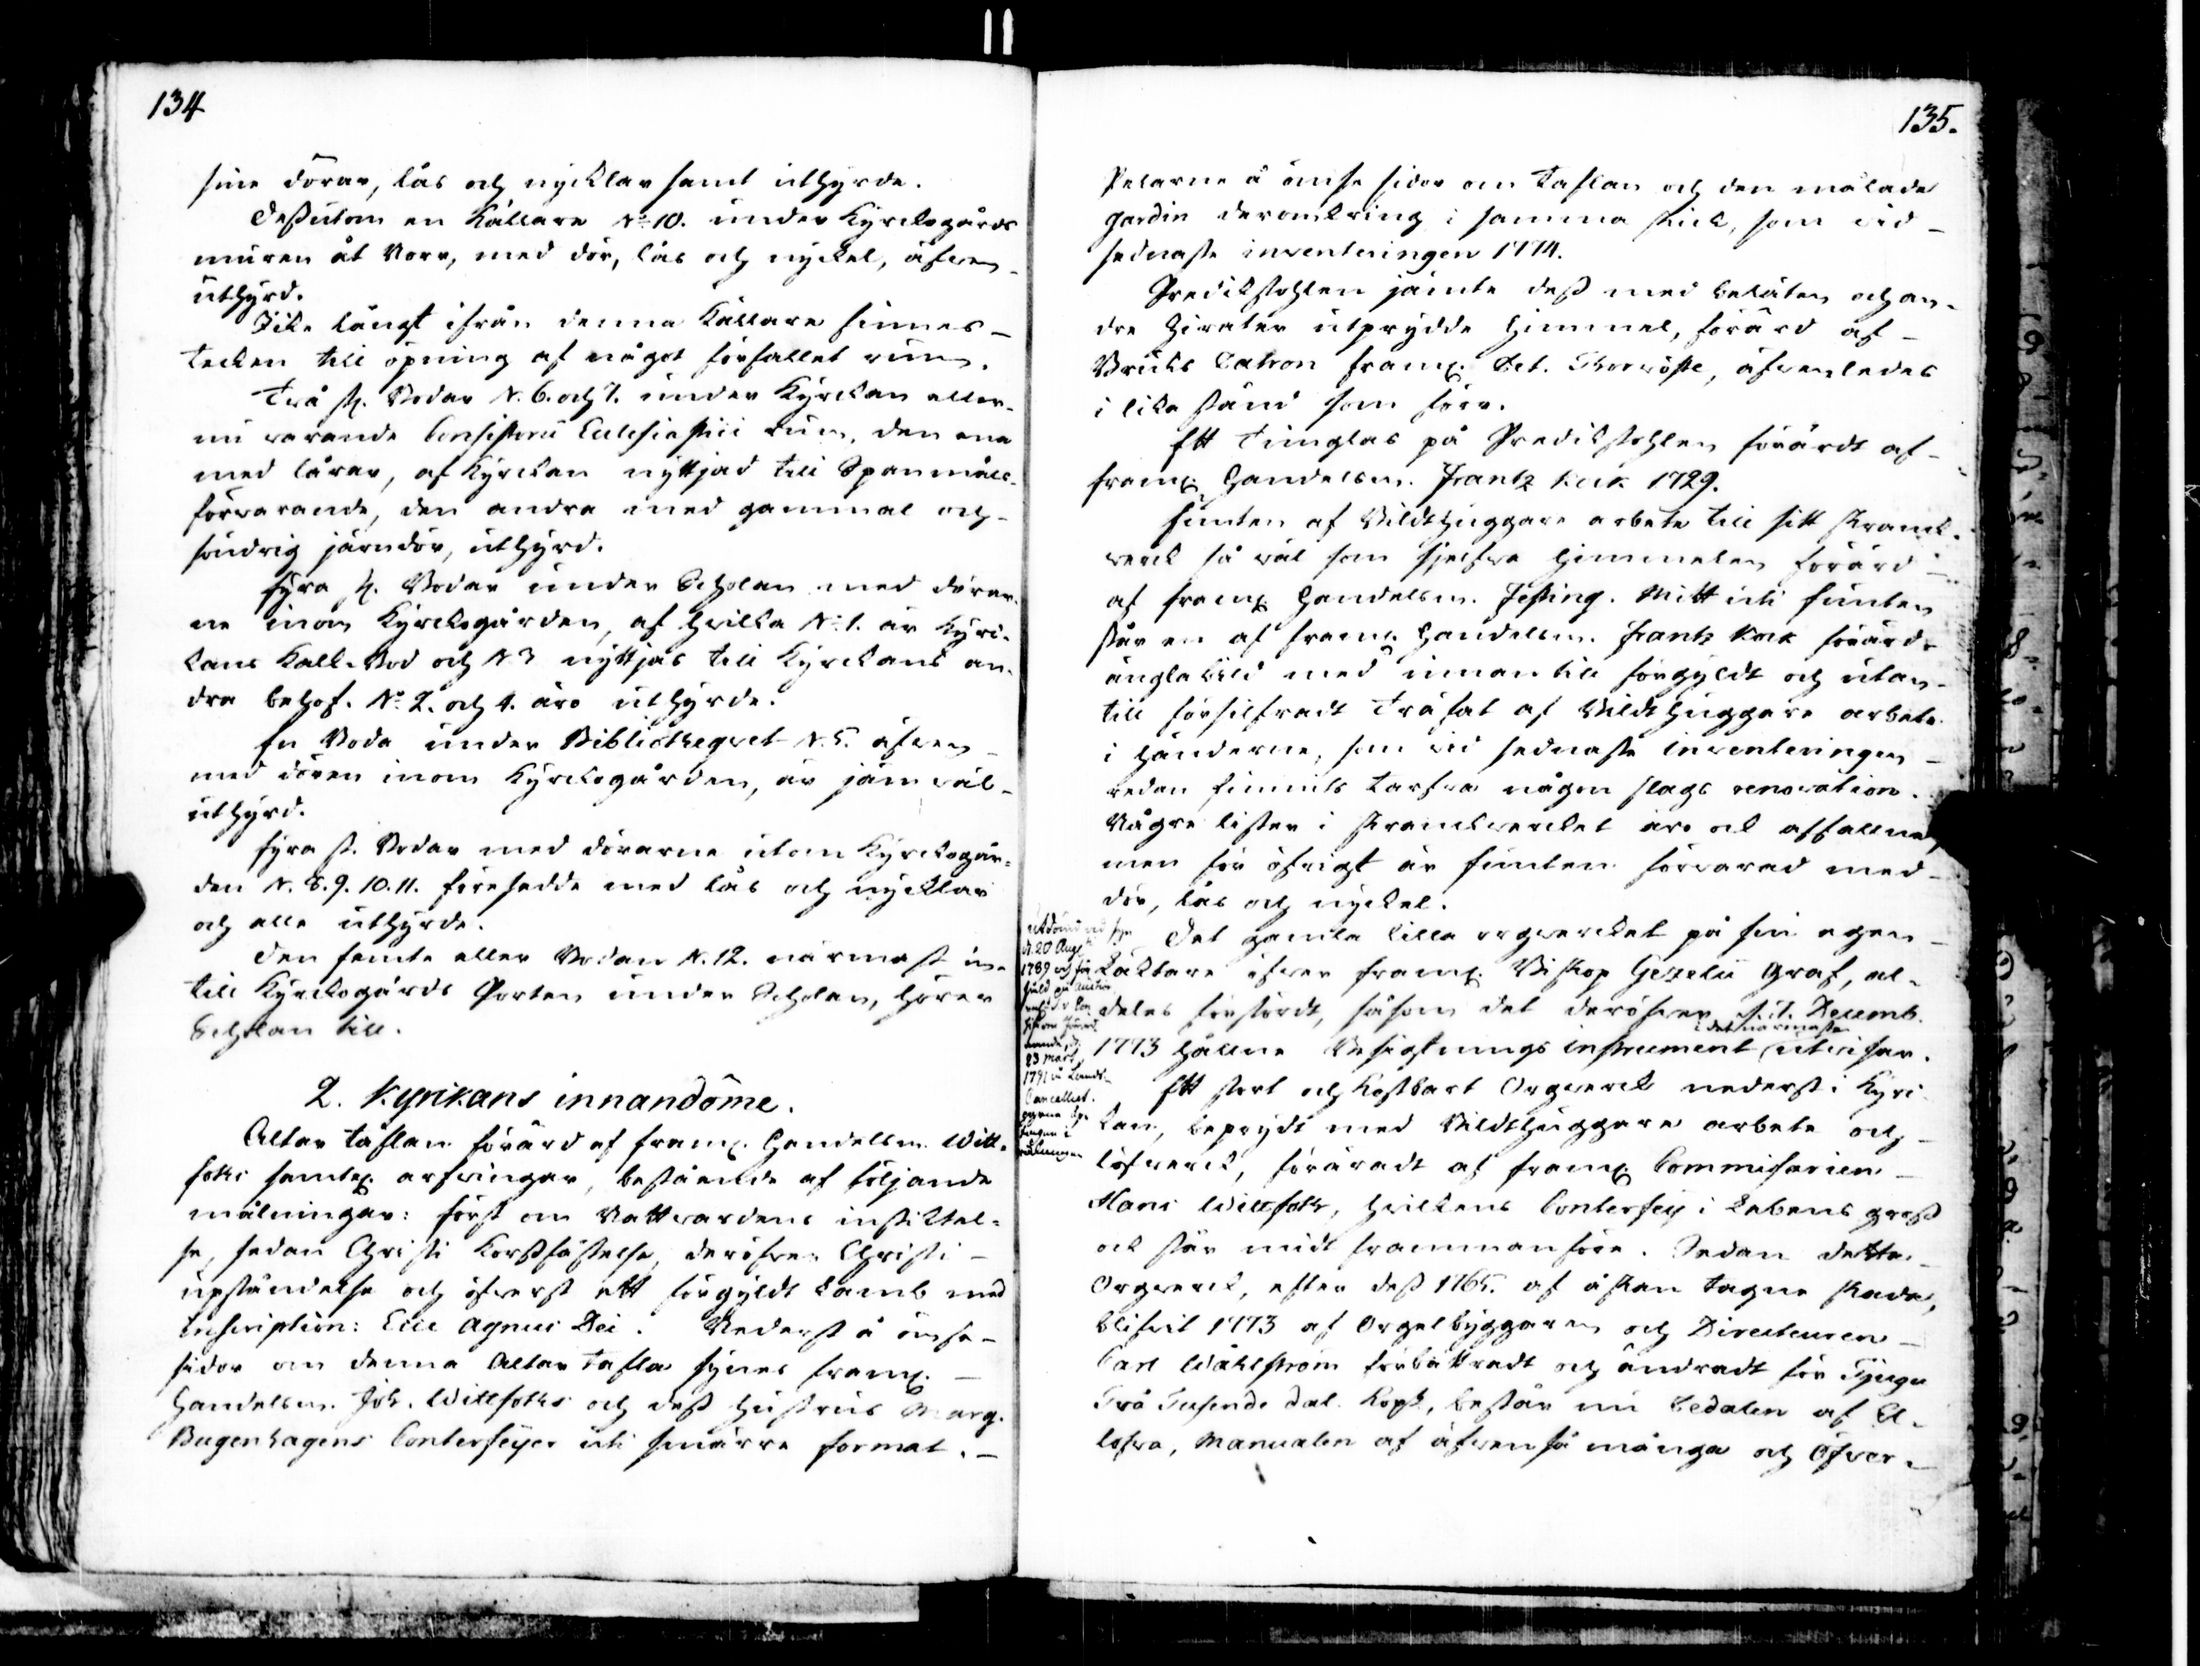 134
sine dörar, lås och nycklar samt uthyrde.
Dessutom en Källare N:o 10. under Kyrkogårds
muren åt Norr, med dör, lås och nyckel, äfven
uthyrd.
Icke långt ifrån denna Källare finnes
tecken till öpning af något förfallet rum.
Två st. Bodar N. 6. och 7. under Kyrckan eller
nu varande Consistorii Ecclesiastici rum, den ena
med lårar, af Kyrckan nyttjad till Spanmåls-
förvarande, den andra med gammal och
söndrig järndör, uthyrd.
Fyra st. Bodar under Scholan med dörar-
ne inom Kyrckogården, af hvilka N:o 1. är Kyrc-
kans Kalk-Bod och N 3 nyttjas till Kyrckans an-
dra behof. N:o 2. och 4. äro uthyrde.
En Boda under Bibliotheqvet N. 5. äfven
med dören inom Kyrckogården, är jämväl
uthyrd.
Fyra st. Bodar med dörarne utom Kyrckogår-
den N. 8. 9. 10. 11. försedde med lås och nycklar
och alle uthyrde.
Den femte eller Bodan N. 12. närmast in-
till Kyrckogårds Porten under Scholan, hörer
Scholan till.
2. Kyrckans innandöme.
Altar taflan förärd af framl. Handelsm. Witt-
foths samtl. arfvingar, bestående af följande
målningar: först om Nattvardens instiktel-
se, sedan Christi Korssfästelse, deröfver Christi
upståndelse och öfverst ett förgyldt Lamb med
Inscription: Ecce Agnus Dei. Nederst å ömse
sidor om denna Altar tafla synes framl.
Handelsm. Joh. Wittfoths och dess hustrus Marg.
Bugenhagens Conterfeyer uti smärre format.
135.
Pelarne å ömse sidor om Taflan och den målade
gardin deromkring i samma skick, som vid
sednaste inventeringen 1774.
Predikstohlen jämte dess med beläten och an-
dre Zirater utprydde Himmel, förärd af
Bruks Patron framl. Pet. Thorwöste, äfvenledes
i lika stånd som förr.
Ett timglas på Predikstohlen förärdt af
framl. Handelsm. Frantz Keck 1729.
Funten af Bildthuggare arbete till sitt skranck-
verck så väl som sjelfva Himmelen förärd
af framl. Handelsm. Festing. Mitt uti funten
står en af framl. Handelsm. Frantz Keck förärd
änglabild med innantill förgyldt och utan-
till försilfradt träfat af Bildthuggare arbete
i händerne, som vid sednaste inventeringen
redan funnits tarfva någon slags renovation.
Några lister i skranckvercket äro ock affallne,
men för öfrigt är funten förvarad med
dör, lås och nyckel.
Det gamla lilla orgvercket på sin egen
Läktare öfver framl. Biskop Gezelii Graf, al-
deles förstördt, såsom det deröfver d. Decemb.
i det närmaste
1773 hållne Besigtnings instrument utvisar.
utdömd vid syn
d. 20 Aug.
1789 och för-
såld på Auction
23 Mart.
1791 å Lands-
Cancelliet.
Ett stort och kostbart Orgverck nederst i Kyrc-
kan, beprydt med Bildthuggare arbete och
löfverck, föräradt af framl. Commissarien
Hans Wittfoth, hvilkens Conterfey i Lebens gross
ock står midt frammanföre. Sedan dette
Orgverck, efter dess 1765. af åskan tagne skada,
blifvit 1773 af Orgelbyggaren och Directeuren
Carl Wåhlström förbättradt och ändradt för Tjugu
Två Tusende dal. Kopt, består nu Pedalen af El-
lofva, Manualen af äfven så många och Öfver-